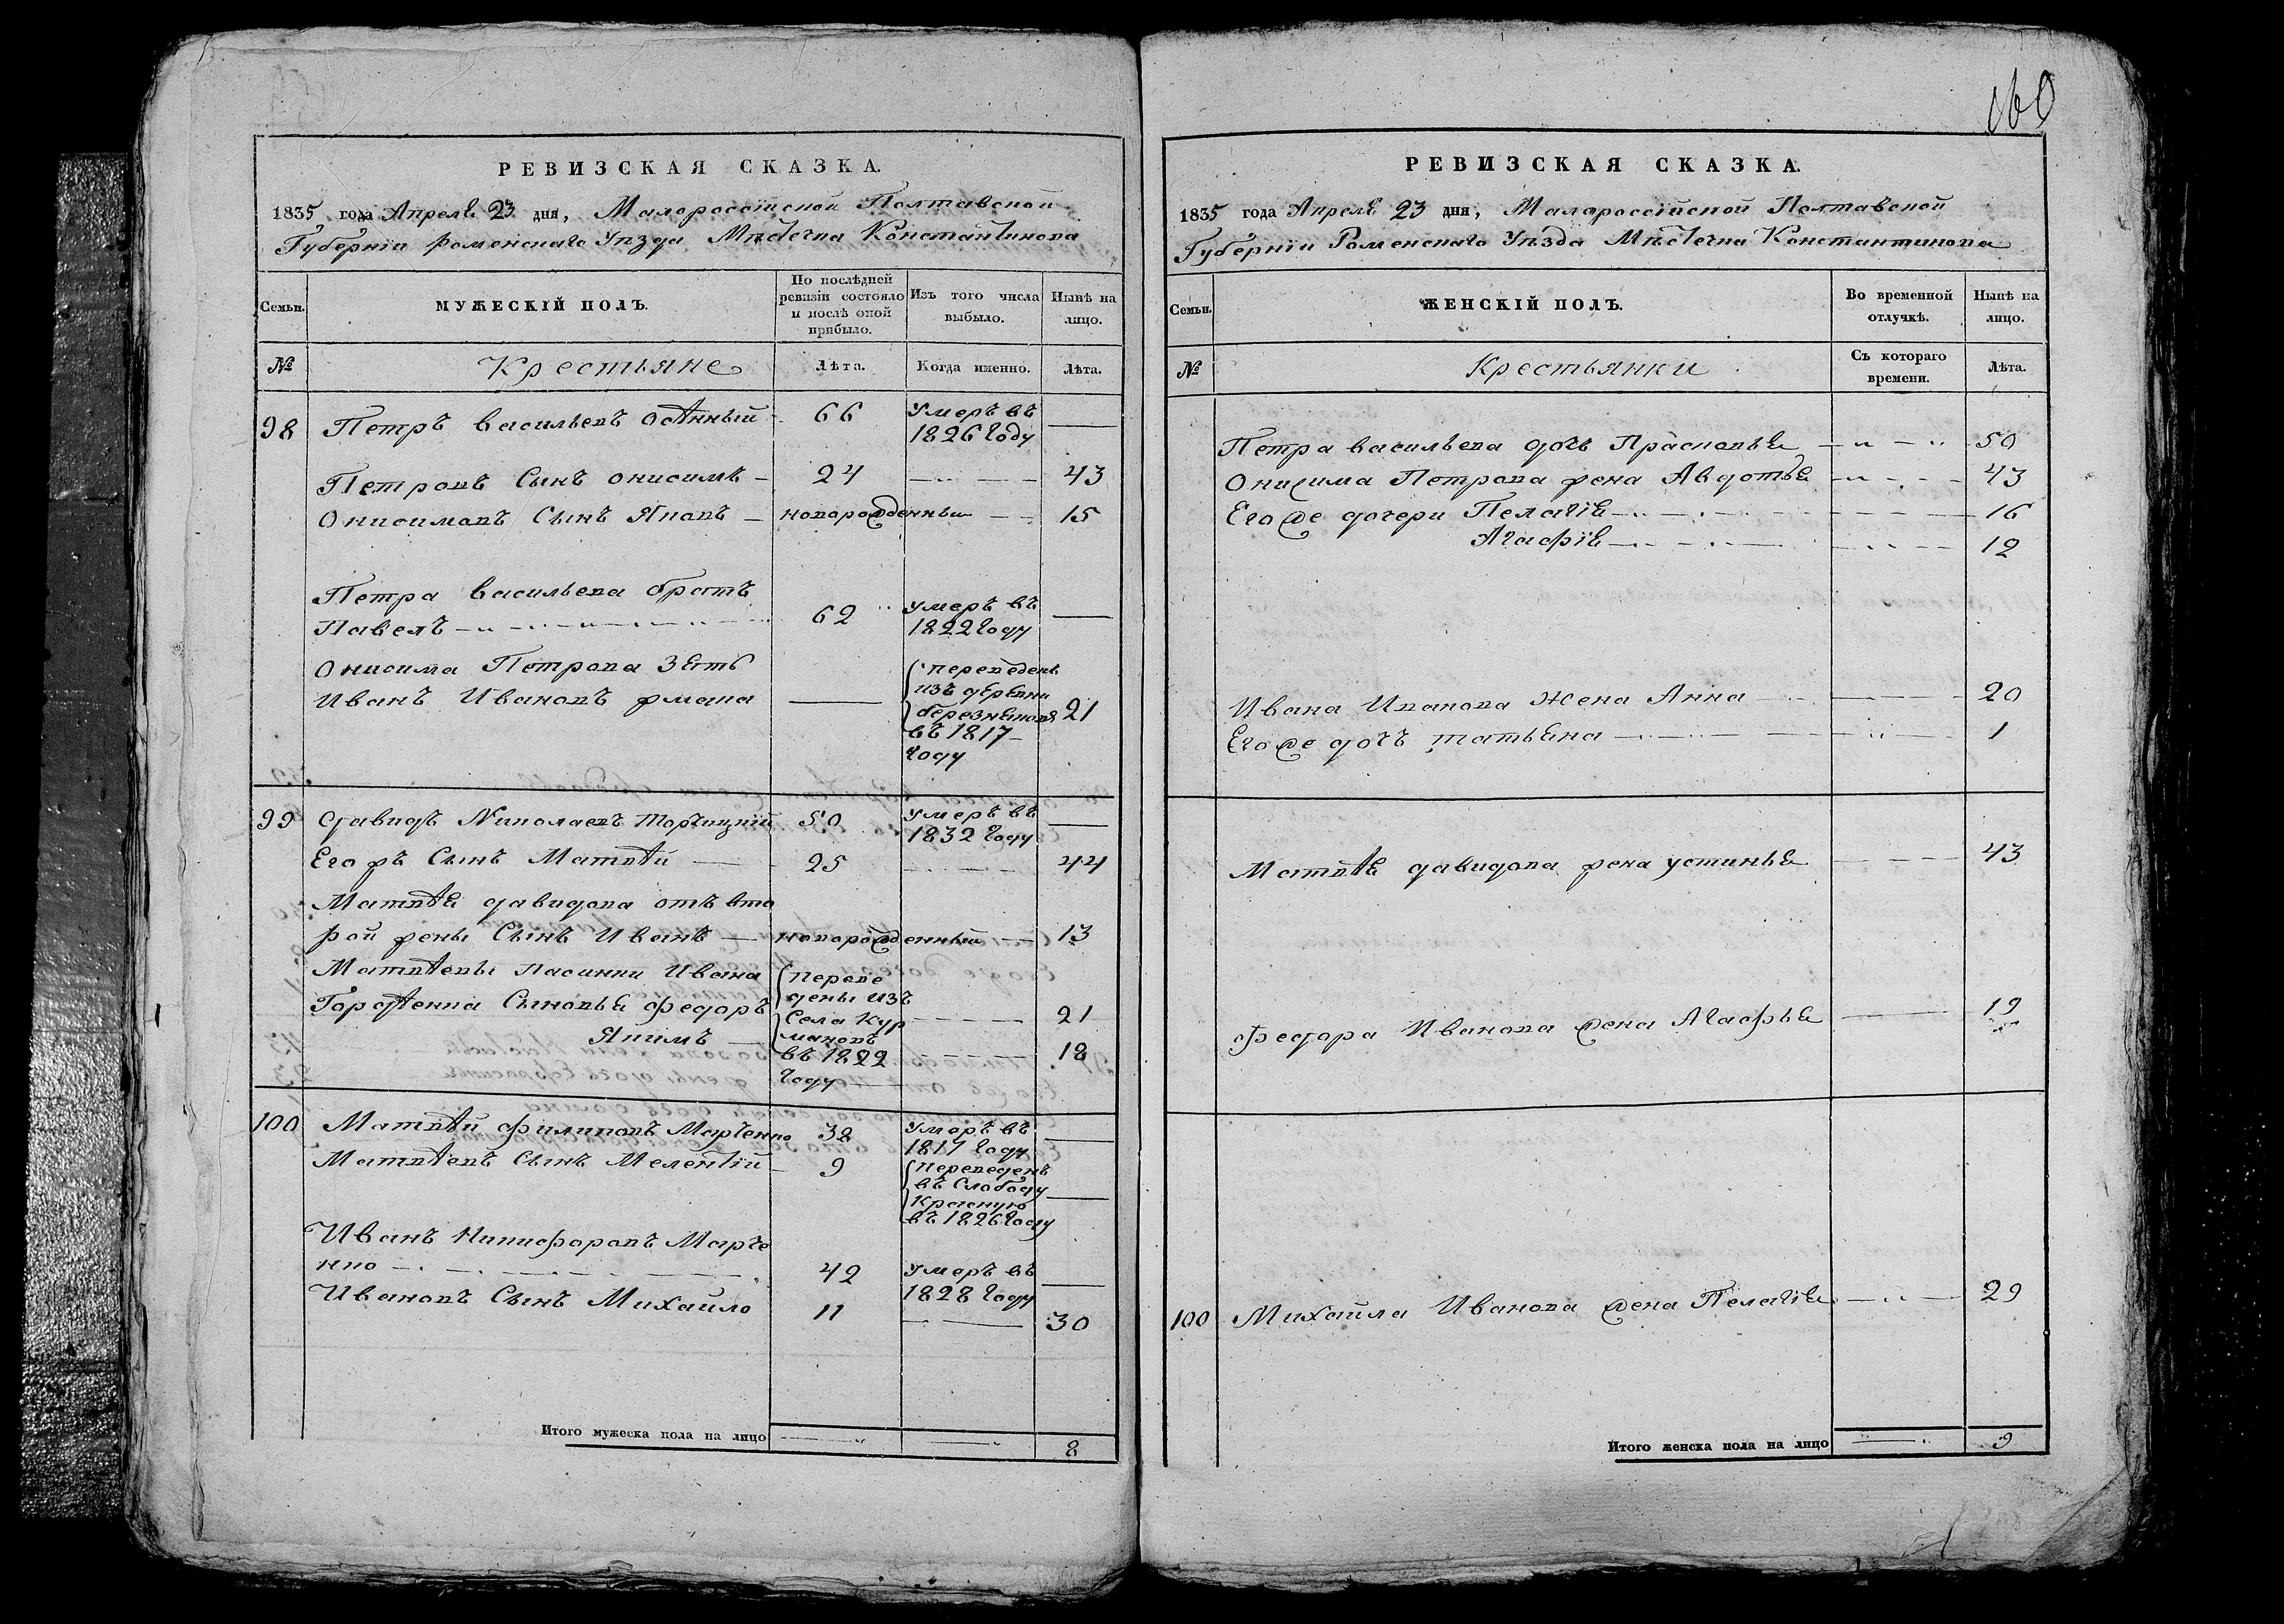 РЕВИЗСКАЯ СКАЗКА.
1835 года Апреля 23 дня, Малороссійской Полтавской
Губерніи Роменскаго Уѣзда Мѣстечка Константинова
Семьи.
МУЖЕСКІЙ ПОЛЪ.
По послѣдней ревизіи состояло и послѣ оной прибыло.
Изъ того числа выбыло.
Нынѣ на лицо.
№
Крестьяне
Лѣта.
Когда именно.
Лѣта.
98 Петръ Васильевъ 66 Умеръ въ
1826 году
Петровъ Сынъ Онисимъ 24 43
Онисимовъ Сынъ Яковъ новорожденный 15
Петра Васильева братъ
Павелъ 62 умеръ въ
1822 году
Онисима Петрова Зять
Иванъ Ивановъ 21
переведенъ
изъ деревни
въ 1817
году
99 Давидъ Николаевъ 50 Умеръ въ
1832 году
Его жъ Сынъ Матвѣй 25 44
Матвѣя давидова отъ вто
рой жены Сынъ Иванъ новорожденный 13
Матвѣевы пасынки Ивана
Сыновья Федоръ 21
Якимъ 18
переве
дены изъ
Села Кур
мановъ
въ 1822
году
100 Матвѣй Филиповъ Марченко 32 Умеръ въ
1817 году
Матвѣевъ Сынъ Мелентій 9 переведенъ
въ Слободу
Красную
въ 1826 году
Иванъ Никифоровъ Марче
нко 42 Умеръ въ
1828 году
Ивановъ Сынъ Михайло 11 30
Итого мужеска пола на лицо 8
160
РЕВИЗСКАЯ СКАЗКА.
1835 года Апреля 23 дня, Малороссійской Полтавской
Губерніи Роменскаго Уѣзда Мѣстечка Константинова
Семьи.
ЖЕНСКІЙ ПОЛЪ.
Во временной отлучкѣ.
Нынѣ на лицо.
№
Крестьянки
Съ котораго времени.
Лѣта.
Петра Васильева дочь Прасковья 50
Онисима Петрова жена Авдотья 43
Его же дочери Пелагія 16
Агафія 12
Ивана Иванова жена Анна 20
Его же дочь татьяна 1
Матвѣя давидова жена устинья 43
Федора Иванова жена Агафья 19
100 Михайла Иванова жена Пелагія 29
Итого женска пола на лицо 9